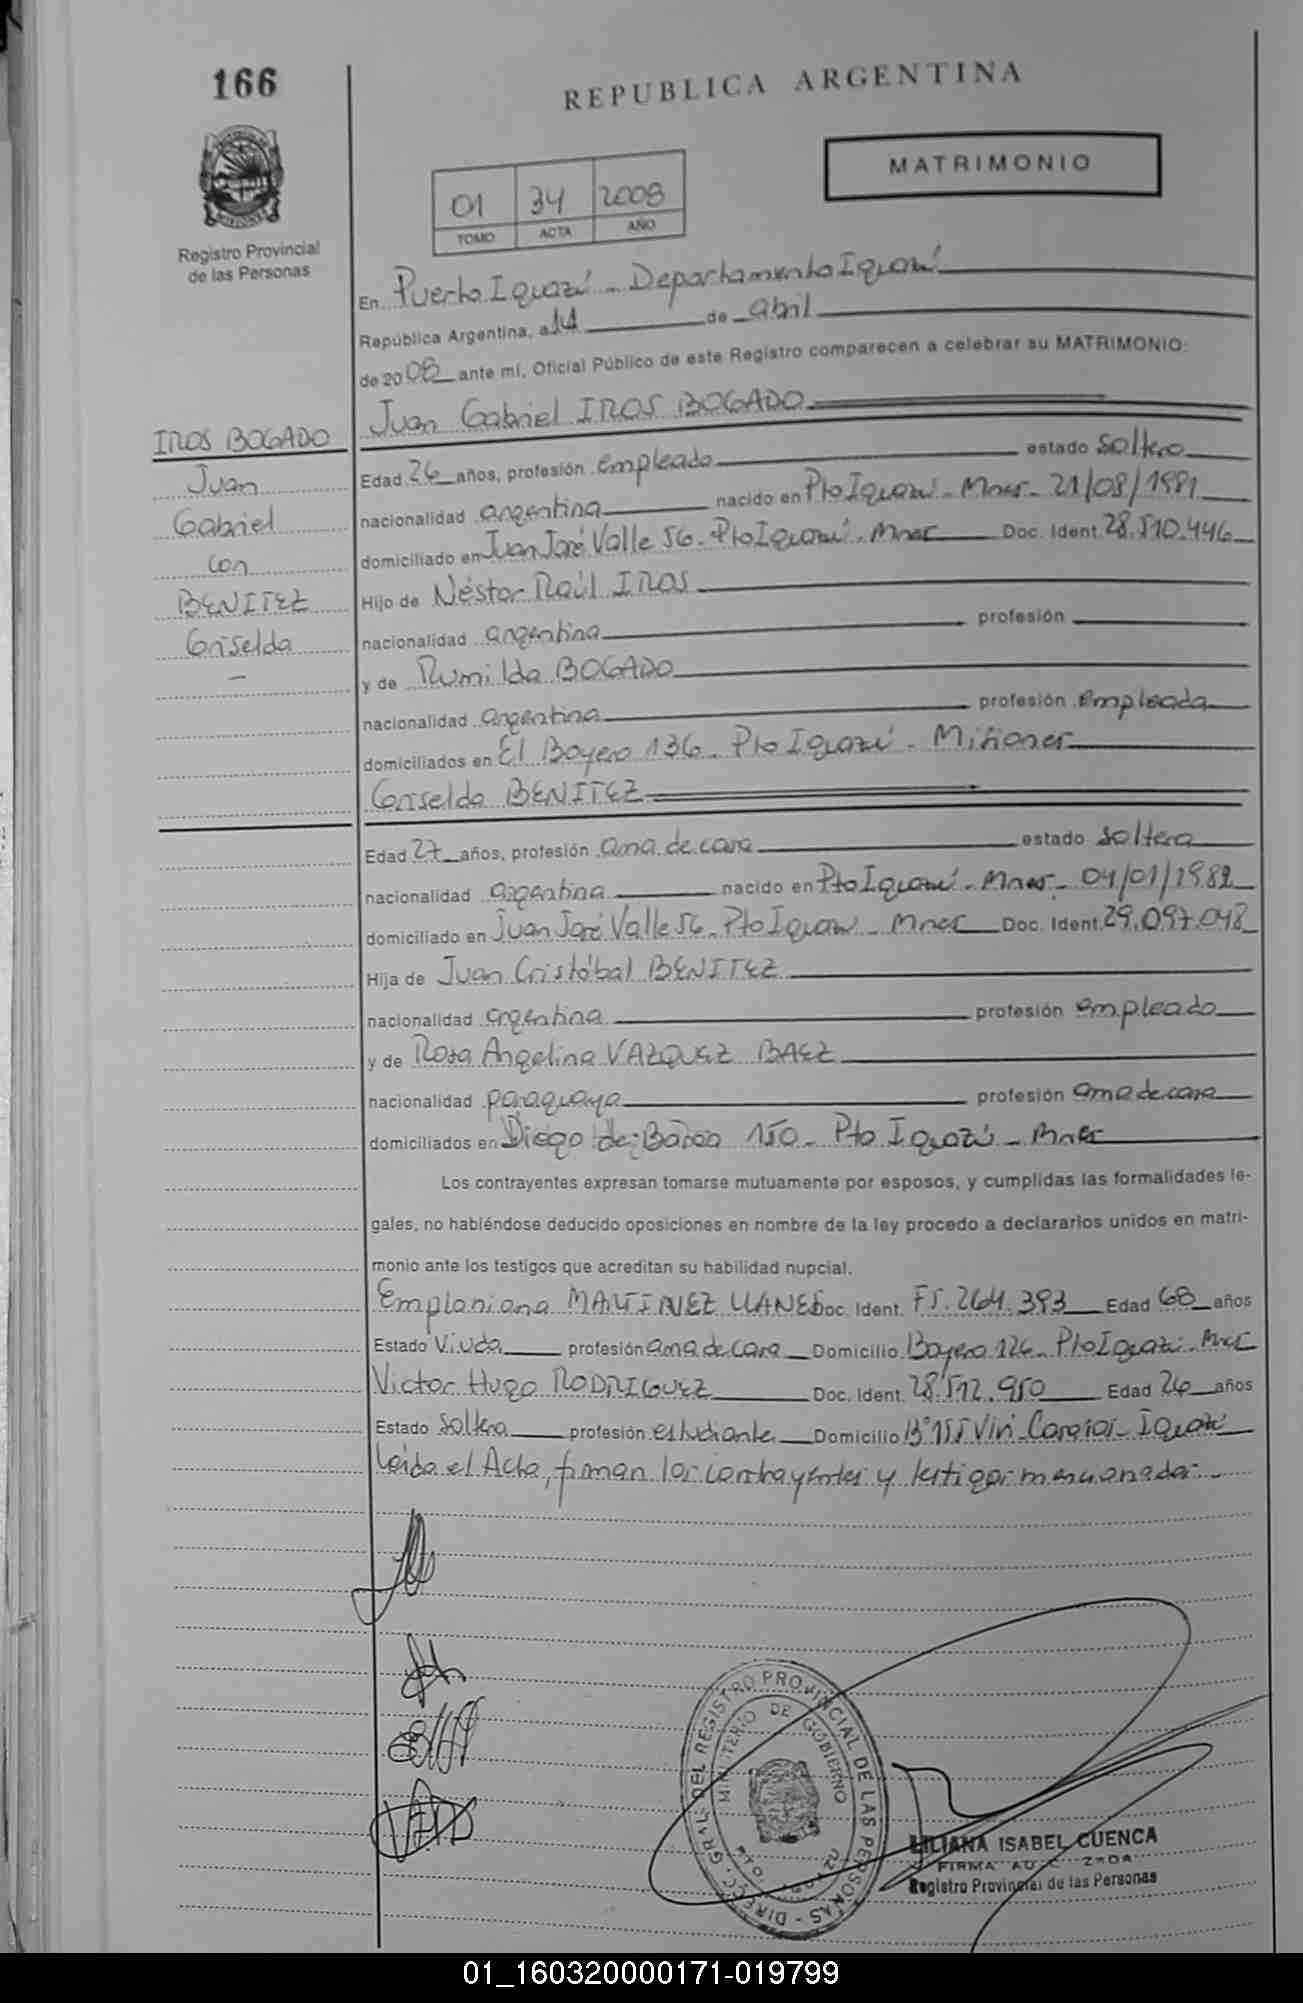 166
REPUBLICA ARGENTINA
MATRIMONIO
01 34 2008
TOMO ACTA AÑO
Registro Provincial
de las Personas
En Puerto Iguazú - Departamento Iguazú
República Argentina, a 14 de abril
de 2008 ante mí, Oficial Público de este Registro comparecen a celebrar su MATRIMONIO:
Juan Gabriel IROS BOGADO
IROS BOGADO
Juan
Gabriel
con
BENITEZ
Griselda
-
Edad 26 años, profesión empleado estado soltero
nacionalidad argentina nacido en Pto Iguazú - Mnes - 21/08/1981
domiciliado en Juan José Valle 56 - Pto Iguazú - Mnes Doc. Ident. 28.510.446
Hijo de Néstor Raúl IROS
nacionalidad argentina profesión
y de Rumilda BOGADO
nacionalidad argentina profesión empleada
domiciliados en El Boyero 136 - Pto Iguazú - Misiones
Griselda BENITEZ
Edad 27 años, profesión ama de casa estado soltera
nacionalidad argentina nacido en Pto Iguazú - Mnes - 04/01/1982
domiciliado en Juan José Valle 56 - Pto Iguazú - Mnes Doc. Ident. 29.097.048
Hija de Juan Cristóbal BENITEZ
nacionalidad argentina profesión empleado
y de Rosa Angelina VAZQUEZ BAEZ
nacionalidad paraguaya profesión ama de casa
domiciliados en Diego de 150 - Pto Iguazú - Mnes
Los contrayentes expresan tomarse mutuamente por esposos, y cumplidas las formalidades le-
gales, no habiéndose deducido oposiciones en nombre de la ley procedo a declararlos unidos en matri-
monio ante los testigos que acreditan su habilidad nupcial.
MARTINEZ Doc. Ident. F5.264.393 Edad 68 años
Estado Viuda profesión ama de casa Domicilio Boyero 126 - Pto Iguazú - Mnes
Victor Hugo RODRIGUEZ Doc. Ident. 28.512.950 Edad 26 años
Estado soltero profesión estudiante Domicilio B° 155 Viv - Iguazú
Leída el Acta, firman los contrayentes y testigos mencionados.-
DIRECC. GRAL. DEL REGISTRO PROVINCIAL DE LAS PERSONAS
MINISTERIO DE GOBIERNO
PTO. IGUAZU
LILIANA ISABEL CUENCA
FIRMA AUTORIZADA
Registro Provincial de las Personas
01_160320000171-019799